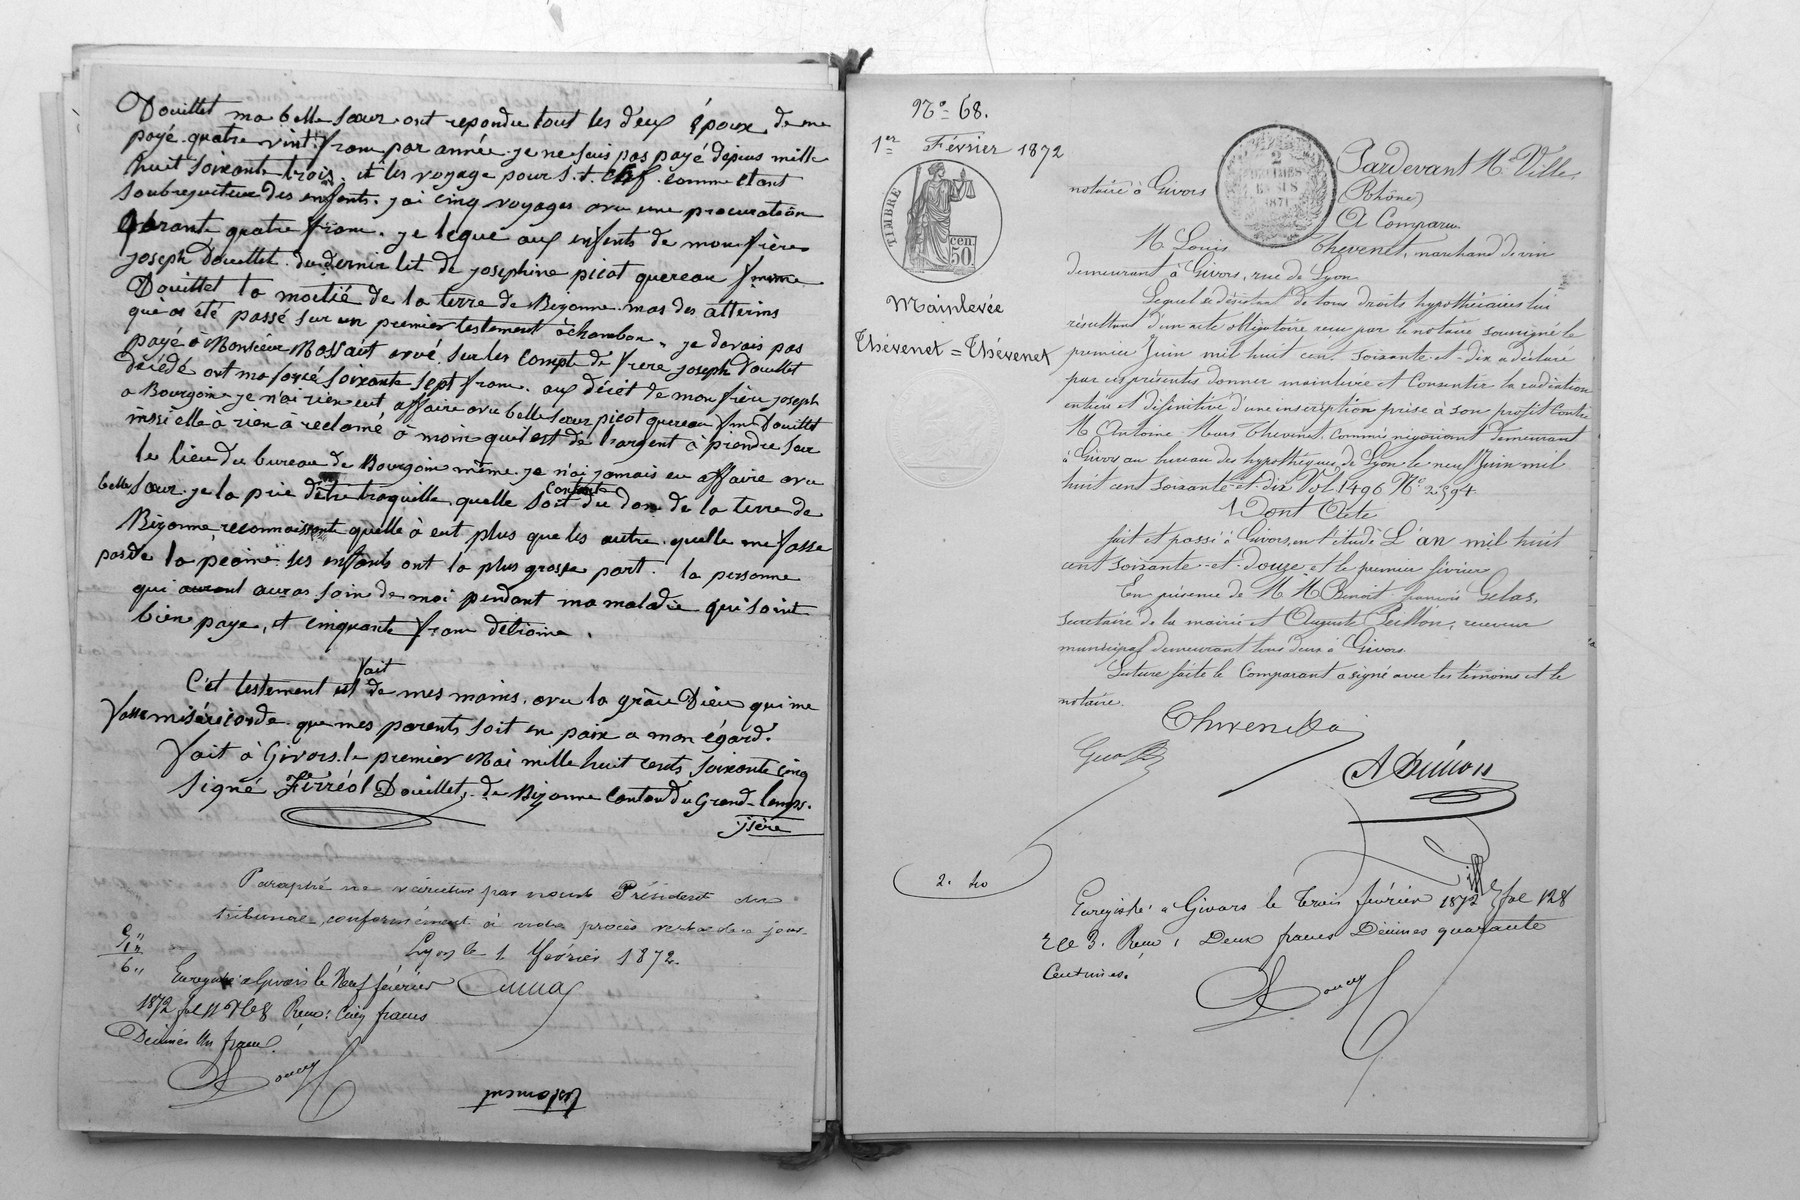 Douillet ma belle sœur ont repondu tout les deux époux de me
payé quatre vint franc par année je ne suis pas payé depuis mille
huit soixante trois. et les voyage pour S.t. Chef comme etant
soubrequiture des enfants. j'ai cinq voyages avec une procuration
quarante quatre franc. je lequé aux enfents de mon frère
joseph Douillet du dernier lit de josephine picot quereau femme
Douillet la moitié de la terre de Bizonne mas des atterins
que as été passé sur un premier testement à chambon. je davais pas
payé à Monsieur Massait avoé sur les compt de frere joseph Douillet
décédé ont ma forcé soixante sept franc. aux décet de mon frère joseph
a Bourgoin je n'ai rien eut affaire avec belle sœur picot quereau fme Douillet
insi elle à rien à reclamé à moin qu'il est de l'argent à prendre sur
le lieu du bureau de Bourgoin même je n'ai jamais eu affaire avec
belle sœur. je la prie d'être traquille quelle soit contente du don de la terre de
Bizonne, reconnaissante quelle à eut plus que les autre. quelle me fasse
pas de la peaine ses enfants ont la plus grosse part. la personne
qui auront auras soin de moi pendant ma maladie qui soint
bien paye, et cinquante franc detrainne.
C'et testement est fait de mes mains. avec la grâce Dieu qui me
fasse miséricorde. que mes parents soit en paix a mon égard.
fait à Givors le premier Mai mille huit cents soixante cinq
Signé Ferréol Douillet, de Bizonne Canton du Grand-lemps.
jsère
Paraphé ne varietur par nous Président du
tribunal, conformément à notre procès verbal de ce jour.
Lyon le 1 février 1872.
5"
1"
6"
Enregistré à Givors le Neuf février
1872 fol 11 Reçu: Cinq francs
Décimes Un franc.
Testament
N.o 68.
1er Février 1872
TIMBRE
50 cen.
Mainlevée
Thévenet = Thévenet
2. 40
2 DECIMES
EN SUS
1871
Pardevant Me Ville,
notaire à Givors (Rhône)
A Comparu
M Louis Thevenet, marchand de vin
demeurant à Givors, rue de Lyon
Lequel se désistant de tous droits hypothécaires lui
résultant d'un acte obligatoire reçu par le notaire soussigné le
premier Juin mil huit cent soixante-et-dix a déclaré
par ces présentes donner mainlevée et consentir la radiation
entière et définitive d'une inscription prise à son profit contre
M Antoine Mars Thevenet, commis négociant demeurant
à Givors au bureau des hypothèques de Lyon le neuf Juin mil
huit cent soixante-et-dix Vol. 1496 No 2594
Dont Acte
fait et passé à Givors, en l'étude L'an mil huit
cent soixante-et-douze et le premier février
En présence de M.M. Benoit françois Gelas,
secrétaire de la mairie et Auguste, receveur
municipal demeurant tous deux à Givors
Lecture faite le Comparant a signé avec les témoins et le
notaire.
Enregistré à Givors le Trois février 1872 fol 128
Rce 3. Reçu: Deux francs Décimes quarante
Centimes.